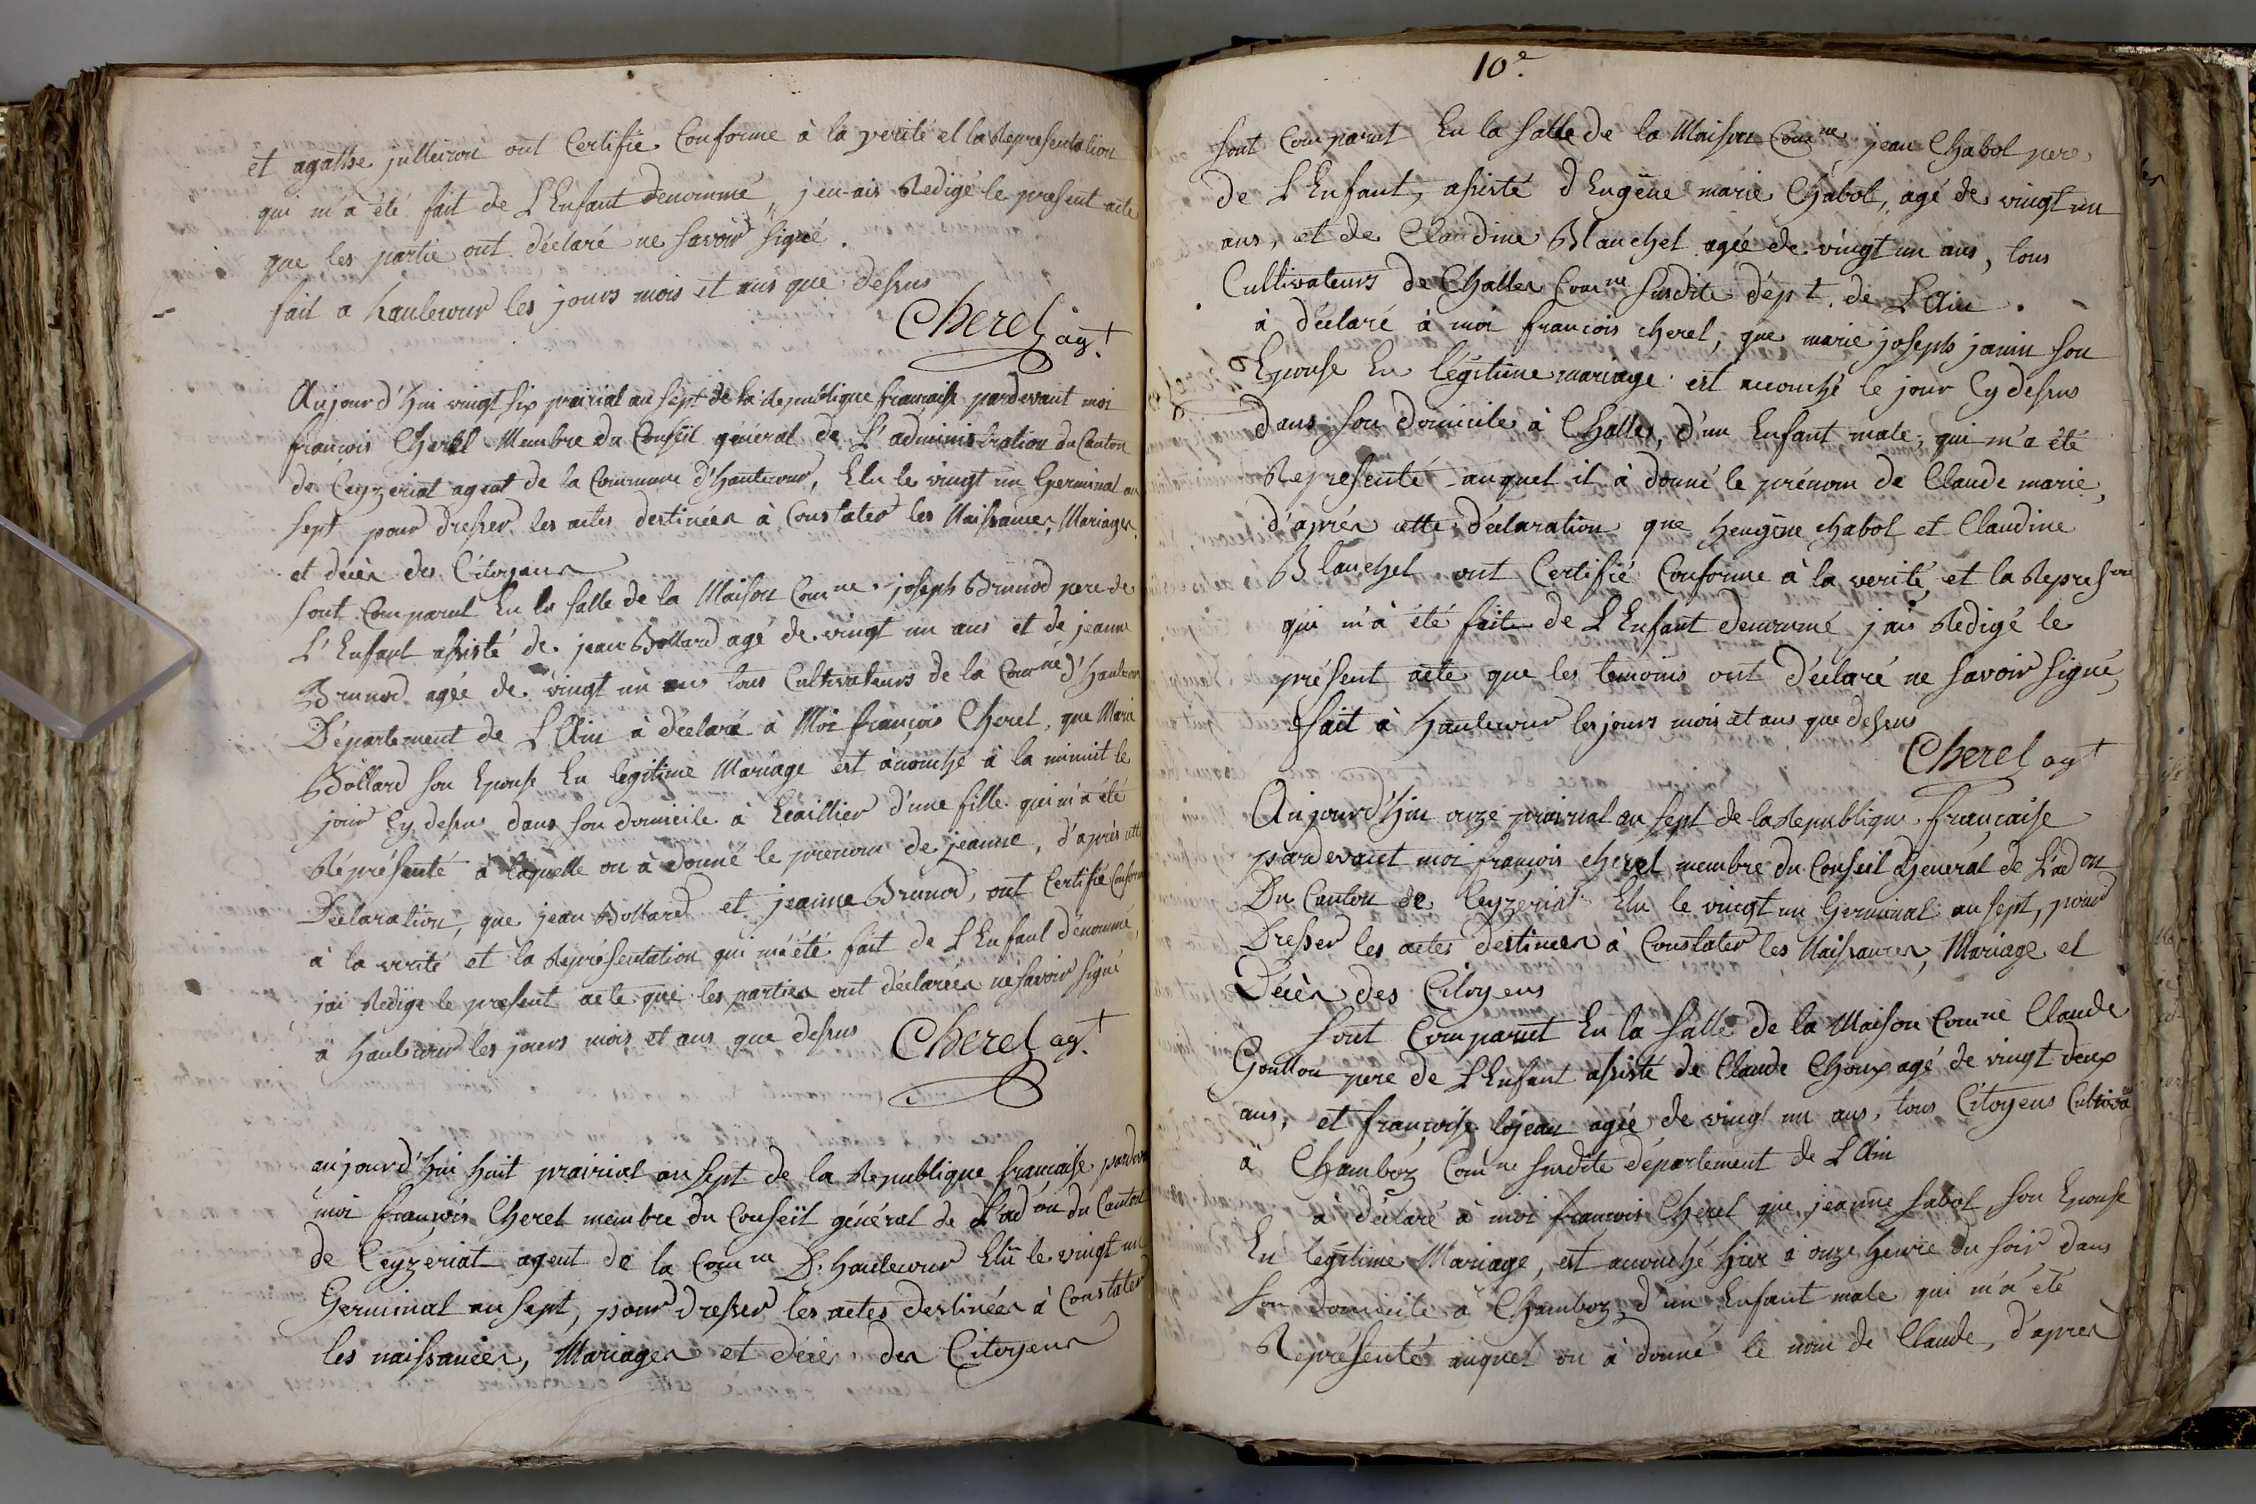 et agathe jullieron ont Certifie Conforme à la verité et la Representation
qui m'a été fait de L'Enfant denommé, j'en-ais Redigé le present acte
que les partie ont déclaré ne savoir signé.
fait a hautecour les jours mois et ans que dessus
Cherel agt
Aujourd'hui vingt six prairial an sept de la Republique francaise pardevant moi
francois Cherel Membre du Conseil général de L'administration du Canton
de Ceyzeriat agent de la Commune d'Hautecour, Elu le vingt un Germinal an
sept pour dresser les actes destinées à Constater les Naissances, Mariages
et decès des Citoyens
sont Comparut En la salle de la Maison Comne joseph Brunod pere de
L'Enfant assisté de jean Bollard agé de vingt un ans et de jeanne
Brunod agée de vingt un ans tous Cultivateurs de la Comne d'hautecour
Département de L'Ain à déclaré à Moi françois Cherel, que Marie
Bollard son Epouse En legitime Mariage est acouché à la minuit le
jour Cy dessus dans son domicile à Ecaillier d'une fille qui m'a été
Réprésenté à laquelle on à donné le prenom de jeanne, d'après cette
Déclaration, que jean Bollard et jeanne Brunod, ont Certifié Conforme
à la verité et la Représentation qui m'a été fait de L'Enfant dénommé,
j'ai Redige le present acte que les parties ont déclarées ne savoir signé
à hautecour les jours mois et ans que dessus
Cherel agt
aujourd'hui huit prairial an sept de la Republique francaise, pardevant
moi françois Cherel membre du Conseil général de L'adon du Canton
de Ceyzeriat agent de la Comne D'hautecour Elu le vingt un
Germinal an sept, pour dresser les actes destinées à Constater
les naissances, Mariages et décès des Citoyens
10e.
sont Comparut En la salle de la Maison Comne jean Chabot pere
de L'Enfant, assisté d'Eugêne marie Chabot, agé de vingt un
ans, et de Claudine Blanchet agée de vingt un ans, tous
Cultivateurs de Challes Comne Susdite dépt. de L'Ain.
à déclaré à moi francois cherel, que marie joseph janin son
Epouse En légitime mariage est acouché le jour Cy dessus
dans son domicile à Challes, d'un Enfant male, qui m'a été
Representé auquel il à donné le prénom de Claude marie,
d'après cette déclaration que heugêne chabot et Claudine
Blanchet ont Certifié Conforme à la verité et la Represon
qui m'à été faite de L'Enfant denommé j'ais Redigé le
présent acte que les temoins ont déclaré ne savoir signé,
fait à hautecour les jours mois et ans que dessus
Cherel agt
Aujourd'hui onze prairial an sept de la Republique française
pardevant moi françois cherel membre du Conseil General de L'adon
Du Canton de Ceyzeriat Elu le vingt un Germinal an sept, pour
Dresser les actes destinées à Constater les Naissances, Mariage et
Décès des Citoyens
sont Comparut En la salle de la Maison Comne Claude
Goullon pere de L'Enfant assisté de Claude Choux agé de vingt deux
ans, et françoise lojean agée de vingt un ans, tous Citoyens Cultivat
à Chamboz Comne susdite département de L'Ain
à déclaré à moi francois Cherel que jeanne sabot son Epouse
En legitime Mariage, est acouché hier à onze heure du soir dans
son domicile à Chamboz, d'un Enfant male qui m'a été
Représenté auquel on à donné le nom de Claude, d'apres